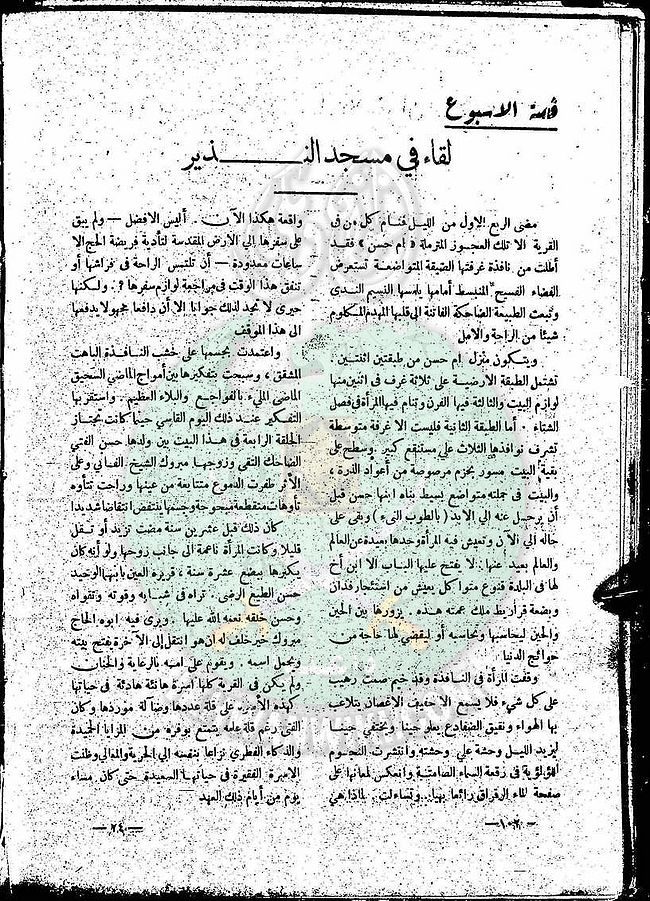 قصة الاسبوع
لقاء في مسجد النـــــذير
مضى الربع الاول من الليل فنام كل من فى
القرية الا تلك العجوز المترملة « ام حسن » فقـد
أطلت من نافذة غرفتها الضيقة المتواضعة تستعرض
الفضاء الفسيح المنبسط أمامها يلمسها النسيم الندى
وتبعث الطبيعة الضاحكة الفاتنة الى قلبها المهدم المكلوم
شيئا من الراحة والامل
ويتكون منزل ام حسن من طبقتين اثنتين .
تشتمل الطبقة الارضية على ثلاثة غرف فى اثنين منها
لوازم البيت والثالثة فيها الفرن وتنام فيها المرأة فى فصل
الشتاء . أما الطبقة الثانية فليست الا غرفة متوسطة
تشرف نوافذها الثلاث على مستنقع كبير وسطح على
بقية البيت مسور بحزم مرصوصة من أعواد الذرة ،
والبيت فى جملته متواضع بسيط بناه ابنها حسن قبل
أن يرحل عنه إلى الابد ( بالطوب النىء ) وبقى على
حاله إلى الآن وتعيش فيه المرأة وحدها بعيدة عن العالم
والعالم بعيد عنها : لا يفتح عليها الباب الا ابن أخ
لها فى البلدة قنوع متواكل يعيش من استئجار فدان
وبضعة قراريط ملك عمته هذه . يزورها بين الحين
والحين ليحاسبها وتحاسبه أو ليقضي لها حاجة من
حوائج الدنيا
وقفت المرأة فى النـافذة وقد خيم صمت رهيب
على كل شىء فلا يسمع الا حفيف الاغصان يتلاعب
بها الهواء ونقيق الضفادع يعلو حينا ويختفي حينـا
ليزيد الليـل وحشة على وحشته وانتشرت النجـوم
اللؤلؤية فى رقعة السماء الصامتـة وانعكس لمعانها على
صفحة الماء الرقراق رائعا بهيا . وتساءلت . لماذا هي
واقعة هكذا الآن . أليس الافضل — ولم يبق
على سفرها إلى الأرض المقدسة لتأدية فريضة الحج الا
ساعات معدودة — أن تلتمس الراحة فى فراشها أو
تنفق هذا الوقت فى مراجعة لوازم سفرها ؟ . ولكنها
حيرى لا تجد لذلك جوابا الا أن دافعا مجهولا يدفعها
الى هذا الموقف
واعتمدت بجسمها على خشب النـافـذة الباهت
المشقق ، وسبحت بتفكيرها بين أمواج الماضي السحيق
الماضى المليء بالفواجع والبلاء العظيم . واستقر بها
التفكير عنـد ذلك اليوم القاسي حينما كانت تجتـاز
الحلقة الرابعة فى هـذا البيت بين ولدها حسن الفتي
الضاحك التقي وزوجهـا مبروك الشيخ الفـاني وعلى
الأثر طفرت الدموع متتابعة من عينها وراحت تتأوه
تأوهات متقطعة مبحوحة وجسمها ينتفض انتفاضا شديدا
كان ذلك قبل عشرين سنة مضت تزيد أو تـقل
قليلا وكانت المرأة ناعمة الى جانب زوجها ولو أنه كان
يكبرها ببضع عشرة سنة ، قريرة العين بابنهـا الوحيد
حسن الطبع الرضى . تراه فى شبـابه وقوته وتقواه
وحسن خلقه نعمة الله عليها . ويرى فيه ابوه الحاج
مبروك خير خلف له ان هو انتقل إلى الآخرة يفتح بيته
ويحمل اسمه . ويقوم على امه بالرعاية والحنان
ولم يكن فى القرية كلها اسرة هانئة هادئة فى حياتها
كهذه الأسرة على قلة عددها وضآلة موردها وكان
الفتى رغم قلة علمه يتمتع بوفرة من المزايا الحميدة
والذكاء الفطرى نزاعا بنفسه إلى الحرية والمعالي وظلت
الاسرة الفقيرة فى حياتهـا السعيدة حتى كان مساء
يوم من أيام ذلك العهد
— ١٠٢ —
— ٢٤ —